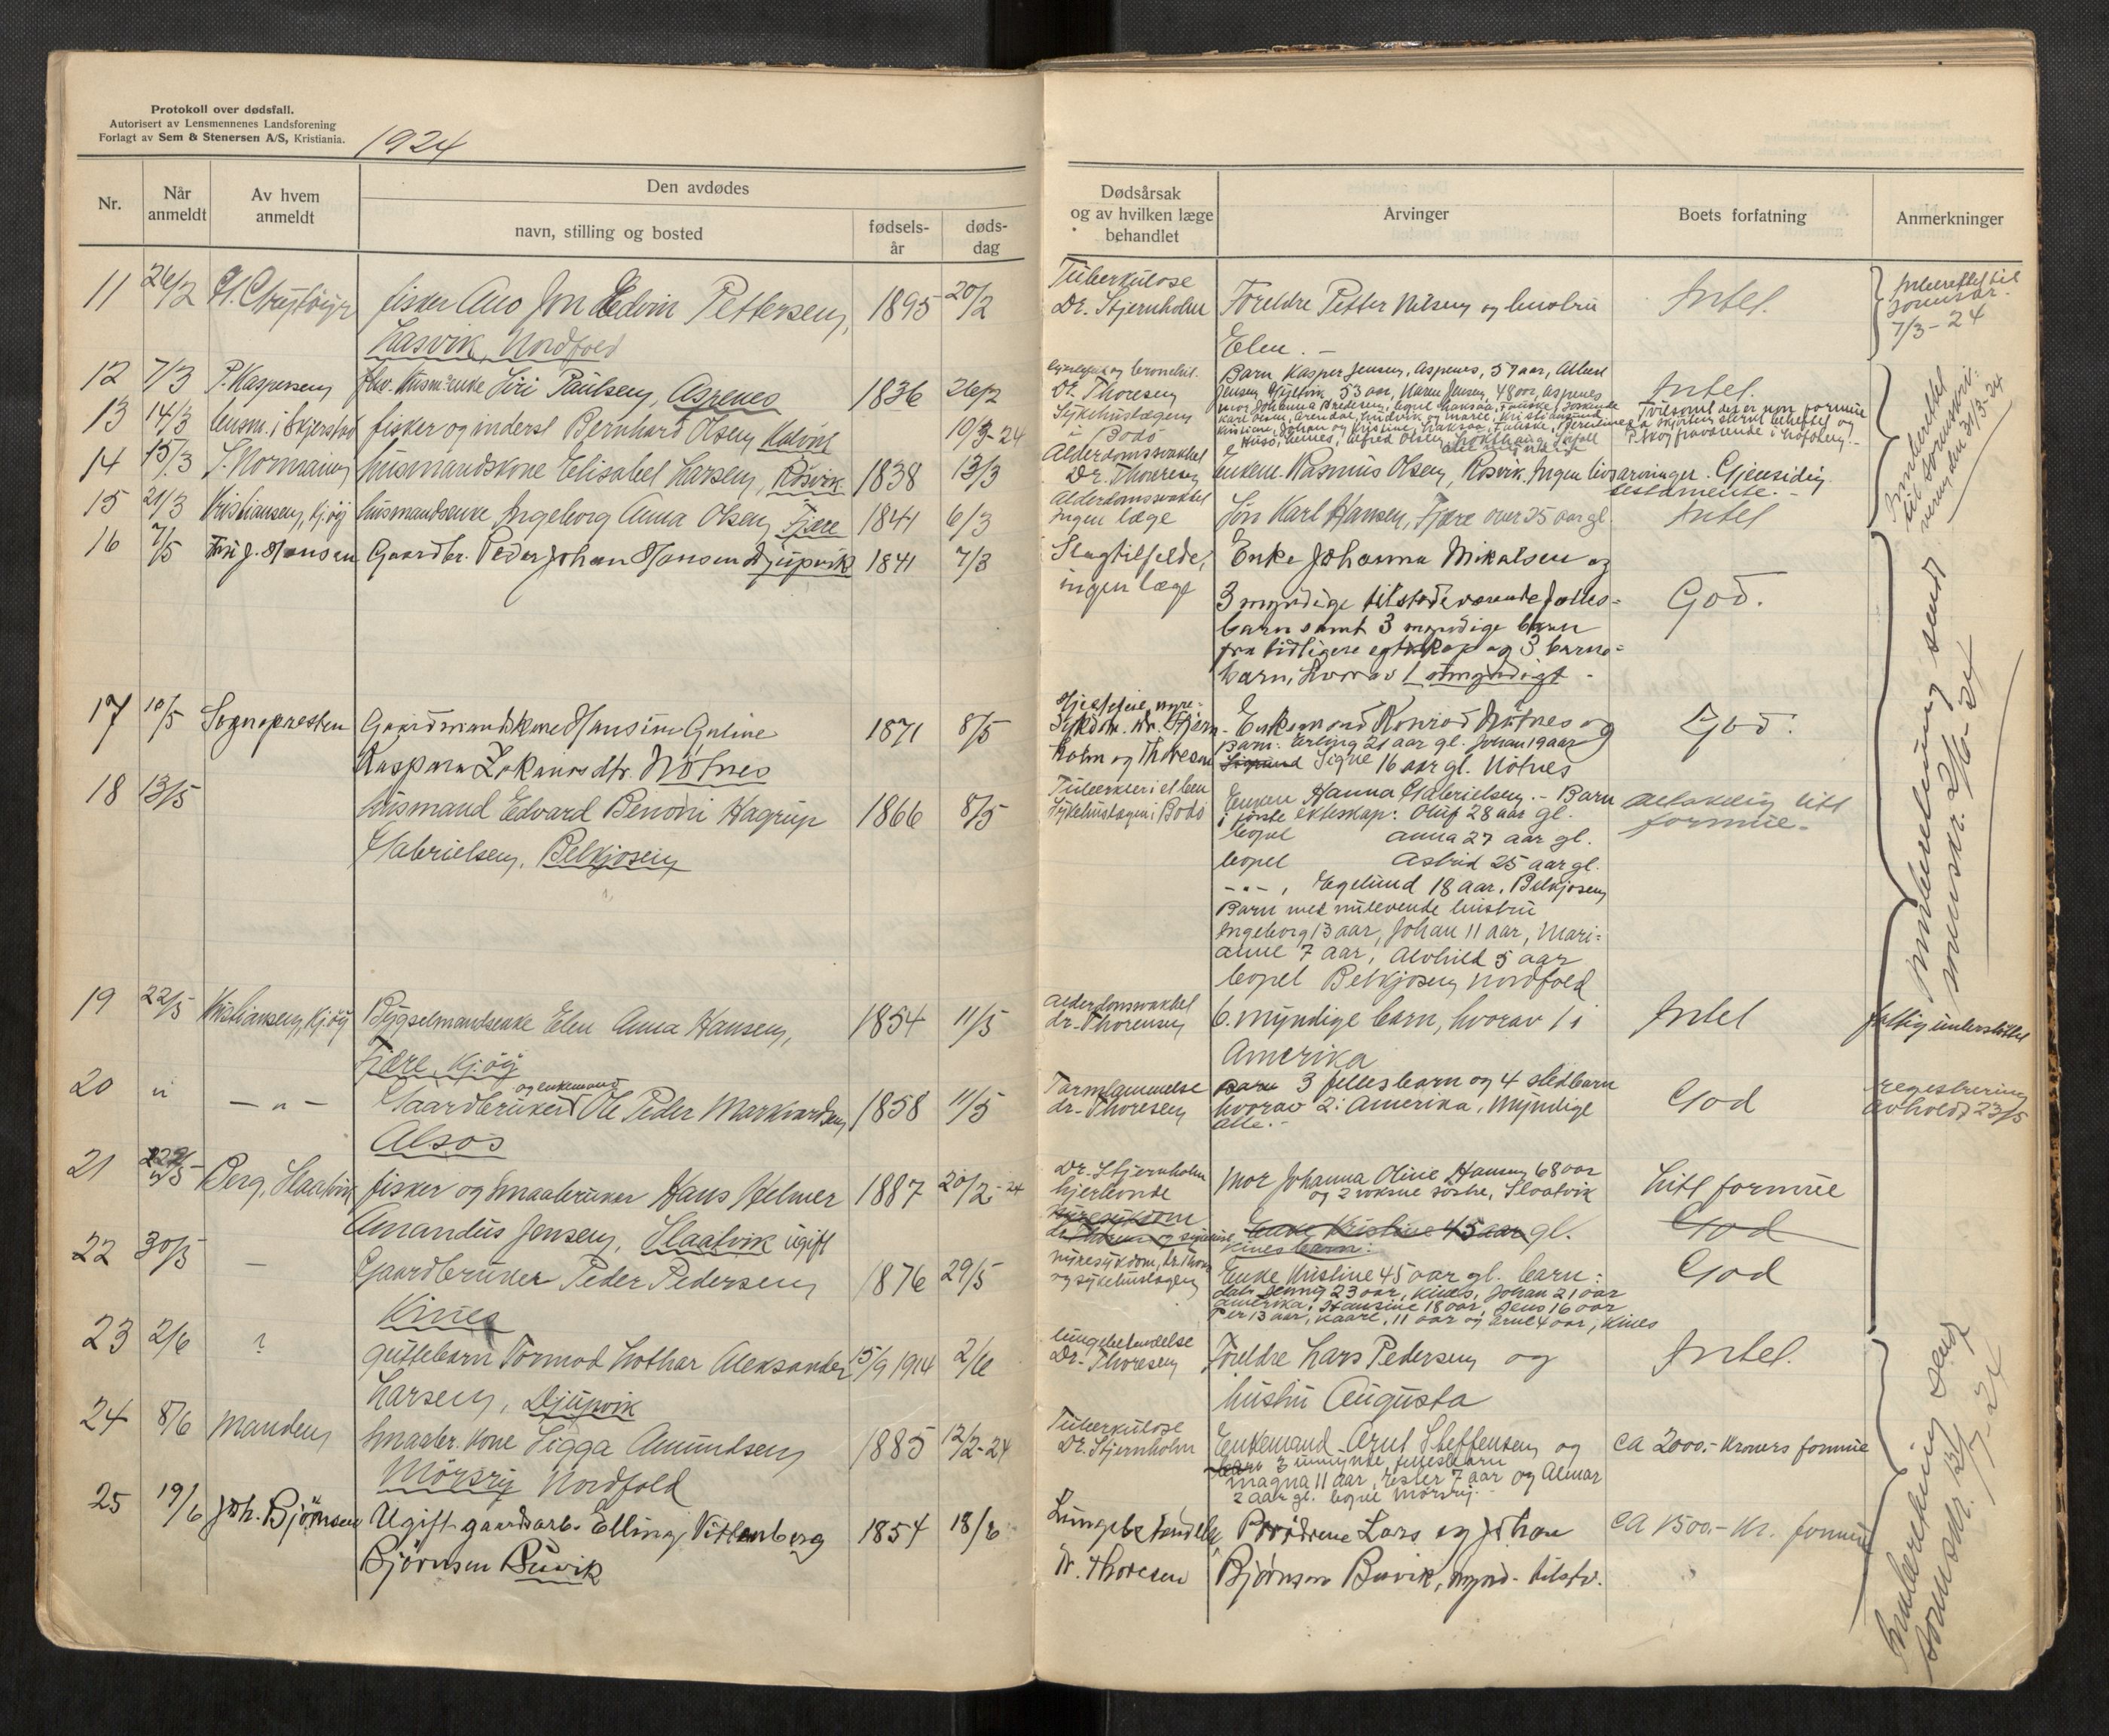 Protokoll over dødsfall.
Autorisert av Lensmennenes Landsforening
Forlagt av Sem & Stenersen A/S, Kristiania.
1924
Nr.
Når anmeldt
Av hvem anmeldt
Den avdødes
navn, stilling og bosted
fødsels-år
døds-dag
Dødsårsak og av hvilken læge behandlet
Arvinger
Boets forfatning
Anmerkninger
11 26/2 fisker Jon Edvin Pettersen, 1895 20/2
Lasvik, Nordfold
Tuberkulose
Dr. Stjernholm Foreldre Petter Nilsen og hustru Intet.
Elen. -
7/3-24
12 7/3 P. Kaspersen enke Siri Paulsen, Aspenes 1836 26/2
Dr. Thoresen
Barn Kasper Jensen, Aspenes, 57 aar, Albert
Jensen 53 aar, Maren Jensen, 48 aar, Aspenes Intet.
13 14/3 lensm. i Skjerstad fisker og inderst Bernhard Olsen Kalvik 10/3-24
Sykehuslægen
i Bodø
14 15/3 S. Normann husmandskone Elisabet Larsen, Røsvik 1838 13/3
Alderdomssvakhet
Dr. Thoresen
enkem. Rasmus Olsen, Røsvik. Ingen livsarvinger. Gjensidig
testamente. -
15 21/3 Kristiansen, Kjøy husmandsenke Ingeborg Anna Olsen Fjære 1841 6/3
Alderdomssvakhet
ingen læge Søn Karl Hansen, Fjære over 25 aar gl. Intet
Innberettet
til sorenskri-
veren den 31/3-24
16 7/5 J. Hansen Gaardbr. Peder Johan Hansen Djupvik 1841 7/3
Slagtilfelde,
ingen læge
Enke Johanna Mikalsen og
3 myndige tilstedeværende felles-
barn samt 3 myndige barn
fra tidligere egteskap og 3 barne-
barn, hvorav 1 umyndigt -
God.
17 10/5 Sognepresten Gaardmandskone Hansine Galine 1871 8/5
Kaspara Zakariasdtr. Nötnes
Hjertefeil, nyre-
sykdom. dr. Stjern-
holm og Thoresen
Enkemand Konrad Nötnes og
Barn: Erling 21 aar gl. Johan 19 aar
Signe 16 aar gl. Nötnes
God.
18 13/5 husmand Edvard Benoni Hagrup 1866 8/5
Gabrielsen, Belkjosen
Tuberkler i et ben
Sykehuslægen i Bodø
Enken Hanna Gabrielsen. - Barn
i første ekteskap: Oluf 28 aar gl.
bopel Anna 27 aar gl.
bopel Astrid 25 aar gl.
- " - , Egelund 18 aar, Belkjosen
Barn med nulevende hustru
Ingeborg 13 aar, Johan 11 aar, Mari-
anne 7 aar, Alvhild 5 aar
bopel Belkjosen Nordfold
litt
formue.
Innberetning sendt
sorenskr. 2/6-24
19 22/5 Kristiansen, Kjøy Bygselmandsenke Elen Anna Hansen, 1854 11/5
Fjære, Kjøy
Alderdomssvakhet
dr. Thoresen
6 myndige barn, hvorav 1 i
Amerika
Intet
fattigunderstøttet
20 " - " - Gaardbruker og enkemand Ole Peder Markvardsen 1858 11/5
Alsos
Tarmlammelse
dr. Thoresen
3 fellesbarn og 4 stedbarn
hvorav 2 i Amerika, Myndige
alle. -
God
registrering
avholdt 23/5
21 Berg, Slaatvik fisker og smaabruker Hans Helmer 1887 20/2-24
Amandus Jensen, Slaatvik ugift
Dr. Stjernholm
hjerte
Mor Johanna Oline Hansen 68 aar
og 2 voksne søstre, Slaatvik
Litt formue
nyresykdom
Enke Kristine 45 aar gl.
God
22 30/5 - Gaardbruker Peder Pedersen 1876 29/5
Kines
nyresykdom, dr. Thor.
og sykehuslægen
Enke Kristine 45 aar gl. barn:
Jenny 23 aar, Kines, Johan 21 aar
Amerika, Hansine 18 aar, Jens 16 aar
Per 13 aar, Kaare, 11 aar og Arne 4 aar, Kines
God
23 2/6 ? guttebarn Tormod Lothar Aleksander 15/9 1914 2/6
Larsen, Djupvik
lungebetendelse
Dr. Thoresen
Foreldre Lars Pedersen og
hustru Augusta
Intet.
24 8/6 manden smaabr. kone Sigga Amundsen 1885 12/2-24
Mörsry Nordfold
Tuberkulose
Dr. Stjernholm
Enkemand Arnt Steffensen og
barn 3 umynde. fellesbarn
Magna 11 aar, Ester 7 aar og Almar
2 aar gl. bopel Mörsry.
ca 2000,- kroners formue
25 19/6 Joh. Björnsen Ugift gaardsarb. Elling Vittenberg 1854 18/6
Björnsen Buvik
Lungebetendelse
Dr. Thoresen
Brödrene Lars og Johan
Björnsen Buvik, mynd. tilst.
ca 1500,- kr. formue
Innberetning sendt
sorenskr. 2/7-24